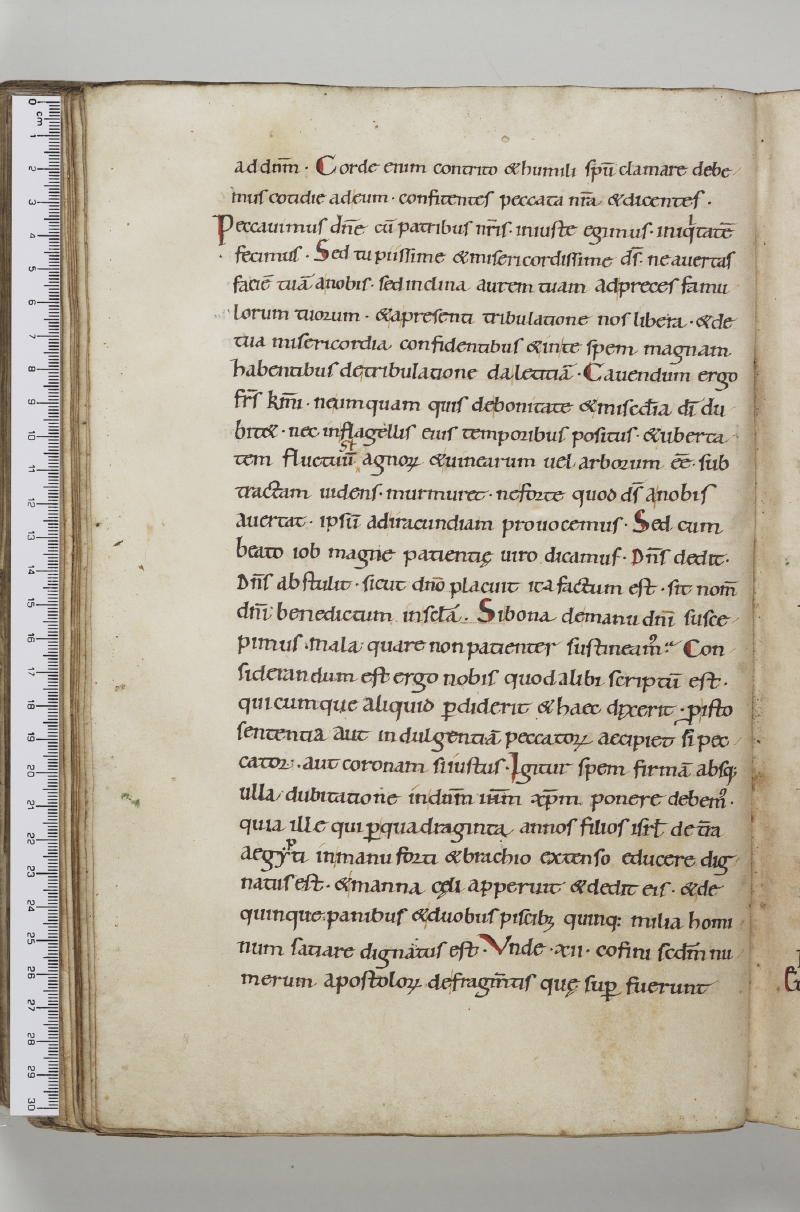 ad dnm̄ · Corde enim contrito &humili spū clamare debe
mus cotidie ad eum · confitentes peccata nr̄a &dicentes ·
Peccauimus dn̄e cū patribus nr̄is · iniuste egimus · iniq'tatē
fecimus · Sed tu piissime &misericordissime d̄s · ne auertas
faciē tuā anobis · sed inclina aurem tuam adpreces famu
lorum tuorum · &apresenti tribulatione nos libera · &de
tua misericordia confidentibus &inte spem magnam
habentibus detribulatione da letitiā · Cauendum ergo
fr̄s km̄i · neumquam quis debonitate &misc̄dia dī du
bit& · nec inflagellis eius temporibus positus · &uberta
tem fluctuū agroꝝ &uinearum uel arborum ēē · sub
tractam uidens · murmuret · neforte quod d̄s anobis
auertat · ipsū adiracundiam prouocemus · Sed cum
beato iob magne patientię uiro dicamus · Dn̄s dedit ·
Dn̄s abstulit · sicut dn̄o placuit ita factum est · sit nom̄
dn̄i benedictum insc̄la · Si bona demanu dn̄i susce
pimus · mala quare non patienter sustineam᷒ · Con
siderandum est ergo nobis quod alibi scriptū est ·
quicumque aliquid ꝑdiderit &haec dixerit · ꝓ isto
sententia aut indulgentiā peccatoꝝ accipiet si pec
cator · aut coronam si iustus · Igitur spem firmā absq;
ulla dubitatione indn̄m ih̄m xp̄m ponere debem᷒ ·
quia ille qui ꝑquadraginta annos filios isrł de t̄ra
aegypti inmanu forti &brachio extenso educere dig
natus est · &manna cęli apperuit &dedit eis · &de
quinque panibus &duobus piscib; quinq; milia homi
num satiare dignatus est · Vnde · xii · cofini scdm̄ nu
merum apostoloꝝ defragm̄tis quę suꝑ fuerunt